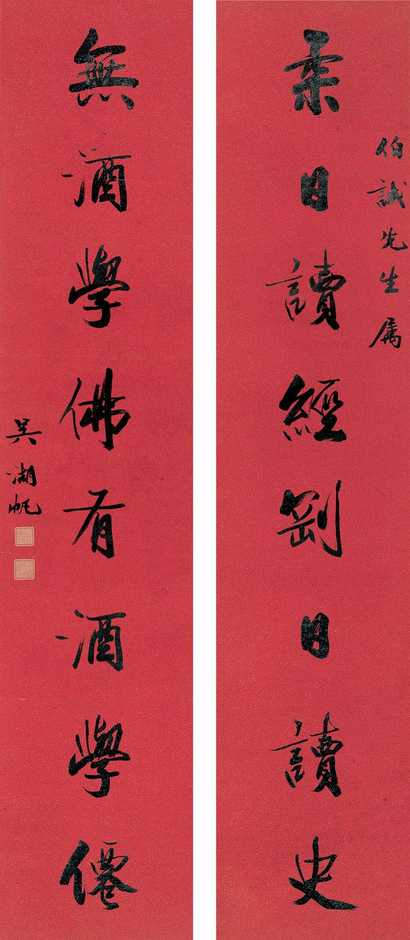 伯誠先生屬
柔日讀經剛日讀史
無酒學佛有酒學僊
吳湖帆